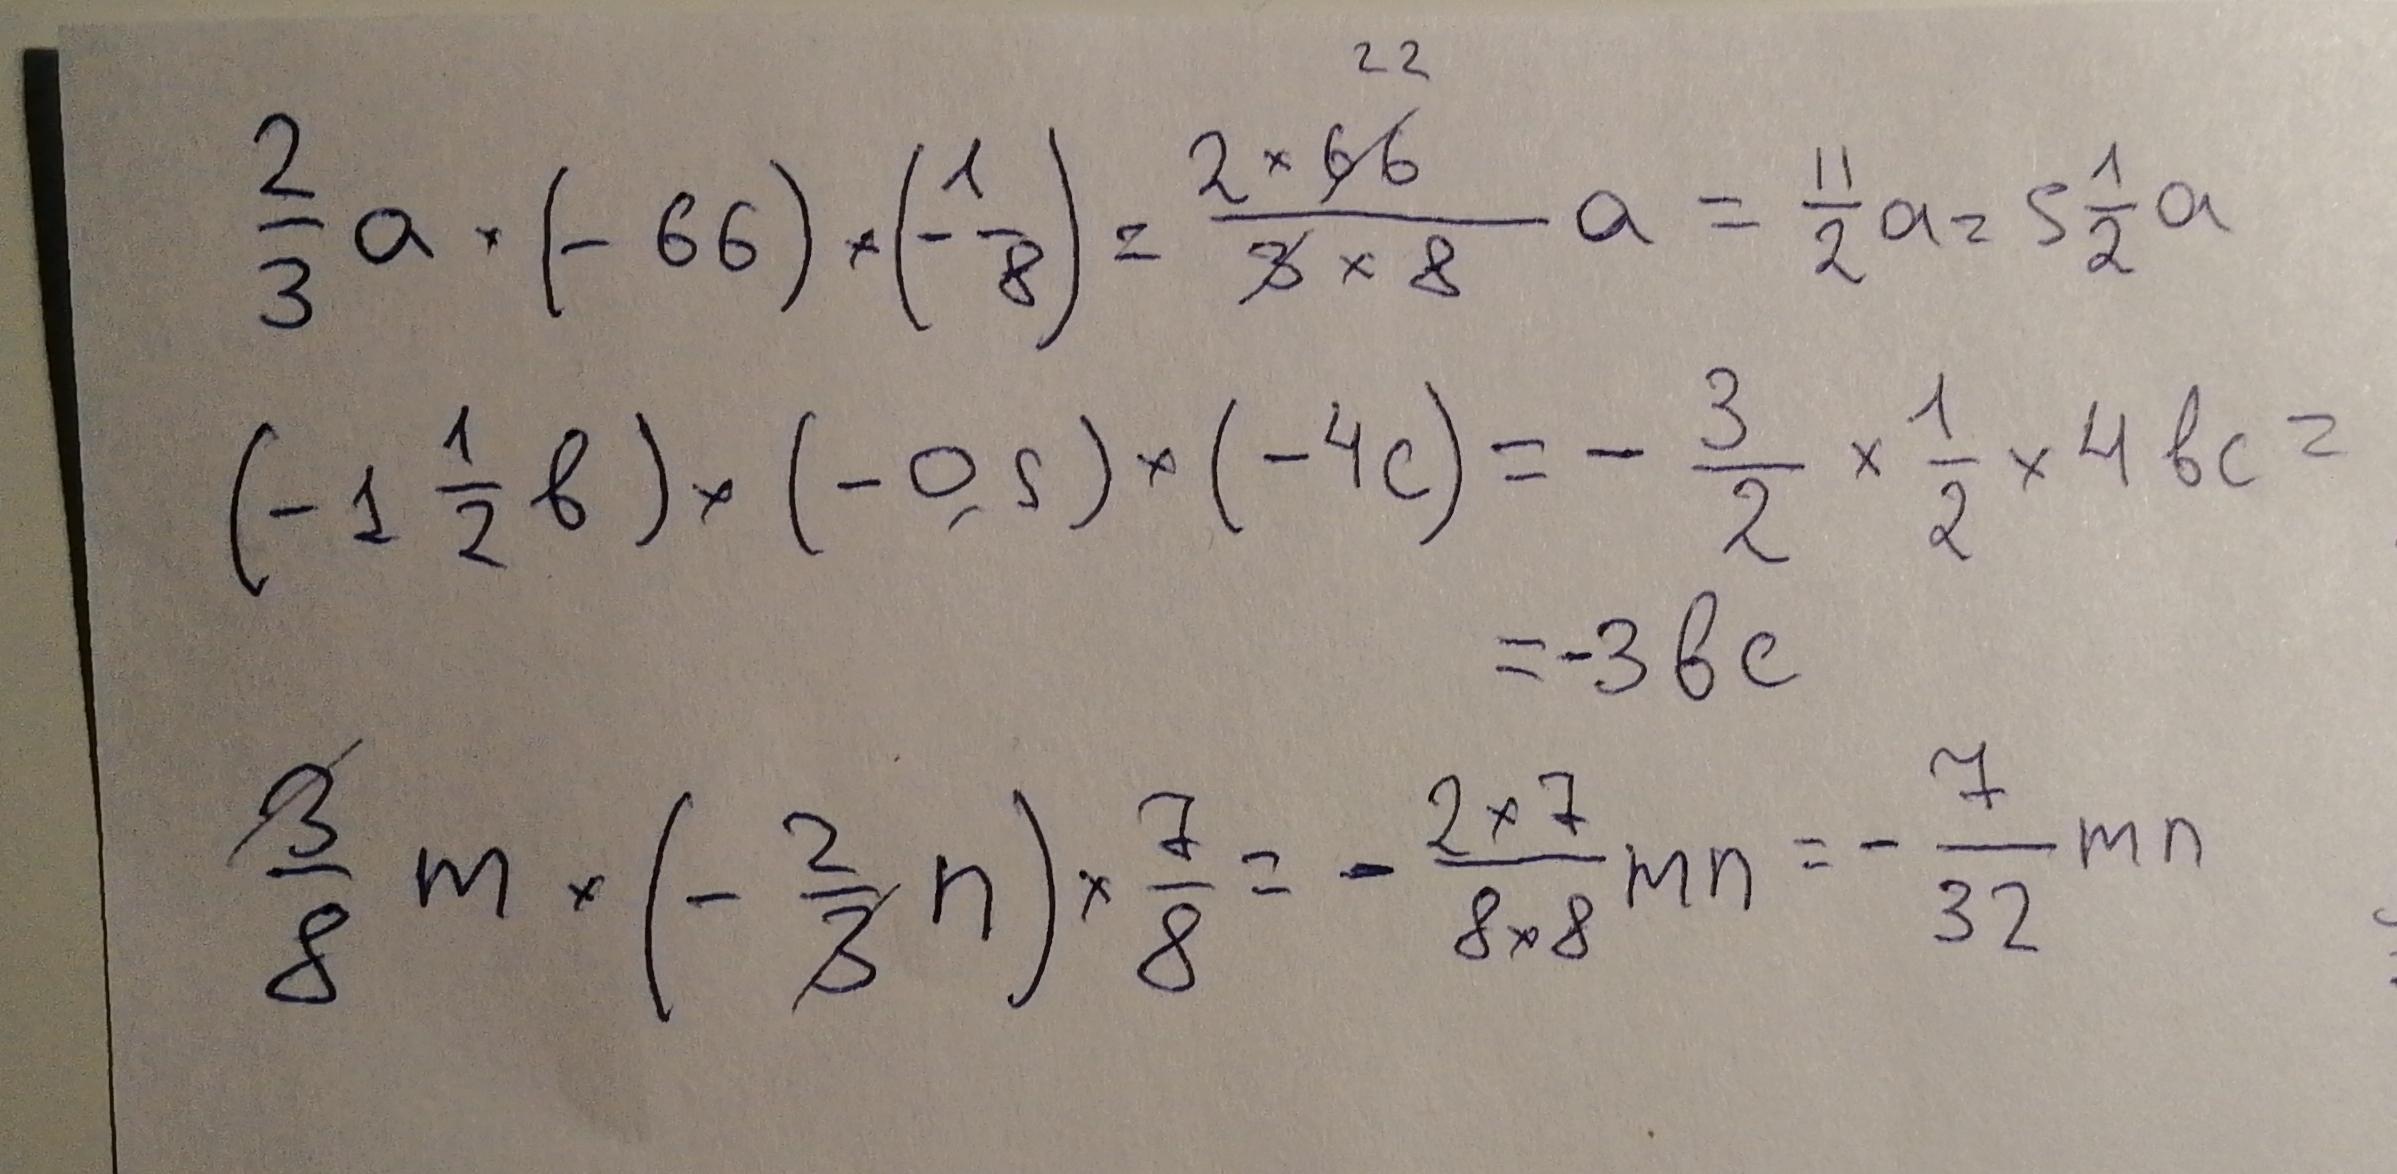 22
2/3 a · (- 66) × (- 1/8) = (2 × 66)/(3 × 8) a = 11/2 a = 5 1/2 a
(-1 1/2 в) × (-0,5) × (-4c) = - 3/2 × 1/2 × 4 вc =
= -3 вc
3/8 m × (- 2/3 n) × 7/8 = - (2×7)/(8×8) mn = - 7/32 mn